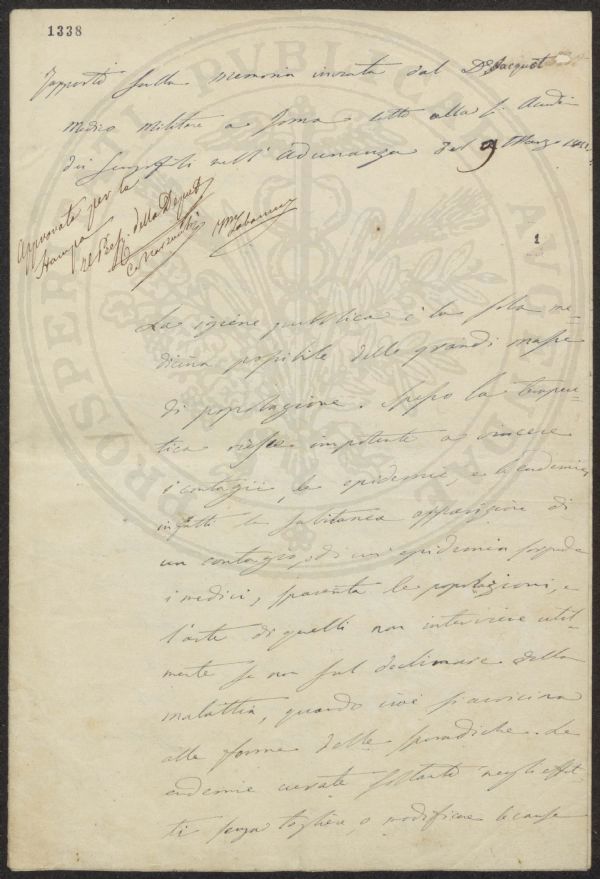 1338
Rapporto sulla memoria inviata dal Dr. Jacquot
medico militare a Roma letto alla R. Accad.
dei Georgofili nell' Adunanza del 9 Marzo
Approvato per la
stampa
della Deput
1
La igiene pubblica è la sola me-
dicina possibile delle grandi masse
di popolazione. Spesso la terapeu-
tica riesce impotente a vincere
i contagii, le epidemie, e le endemie,
infatti la subitanea apparizione di
un contagio, o di un' epidemia sorprende
i medici, spaventa le popolazioni, e
l'arte di quelli non interviene util-
mente se non sul declinare della
malattia, quando cioè si avvicina
alle forme delle sporadiche. Le
endemie curate soltanto negli effet-
ti senza togliere, o modificare le cause
PROSPERITATI PVBLICAE AVGENDAE